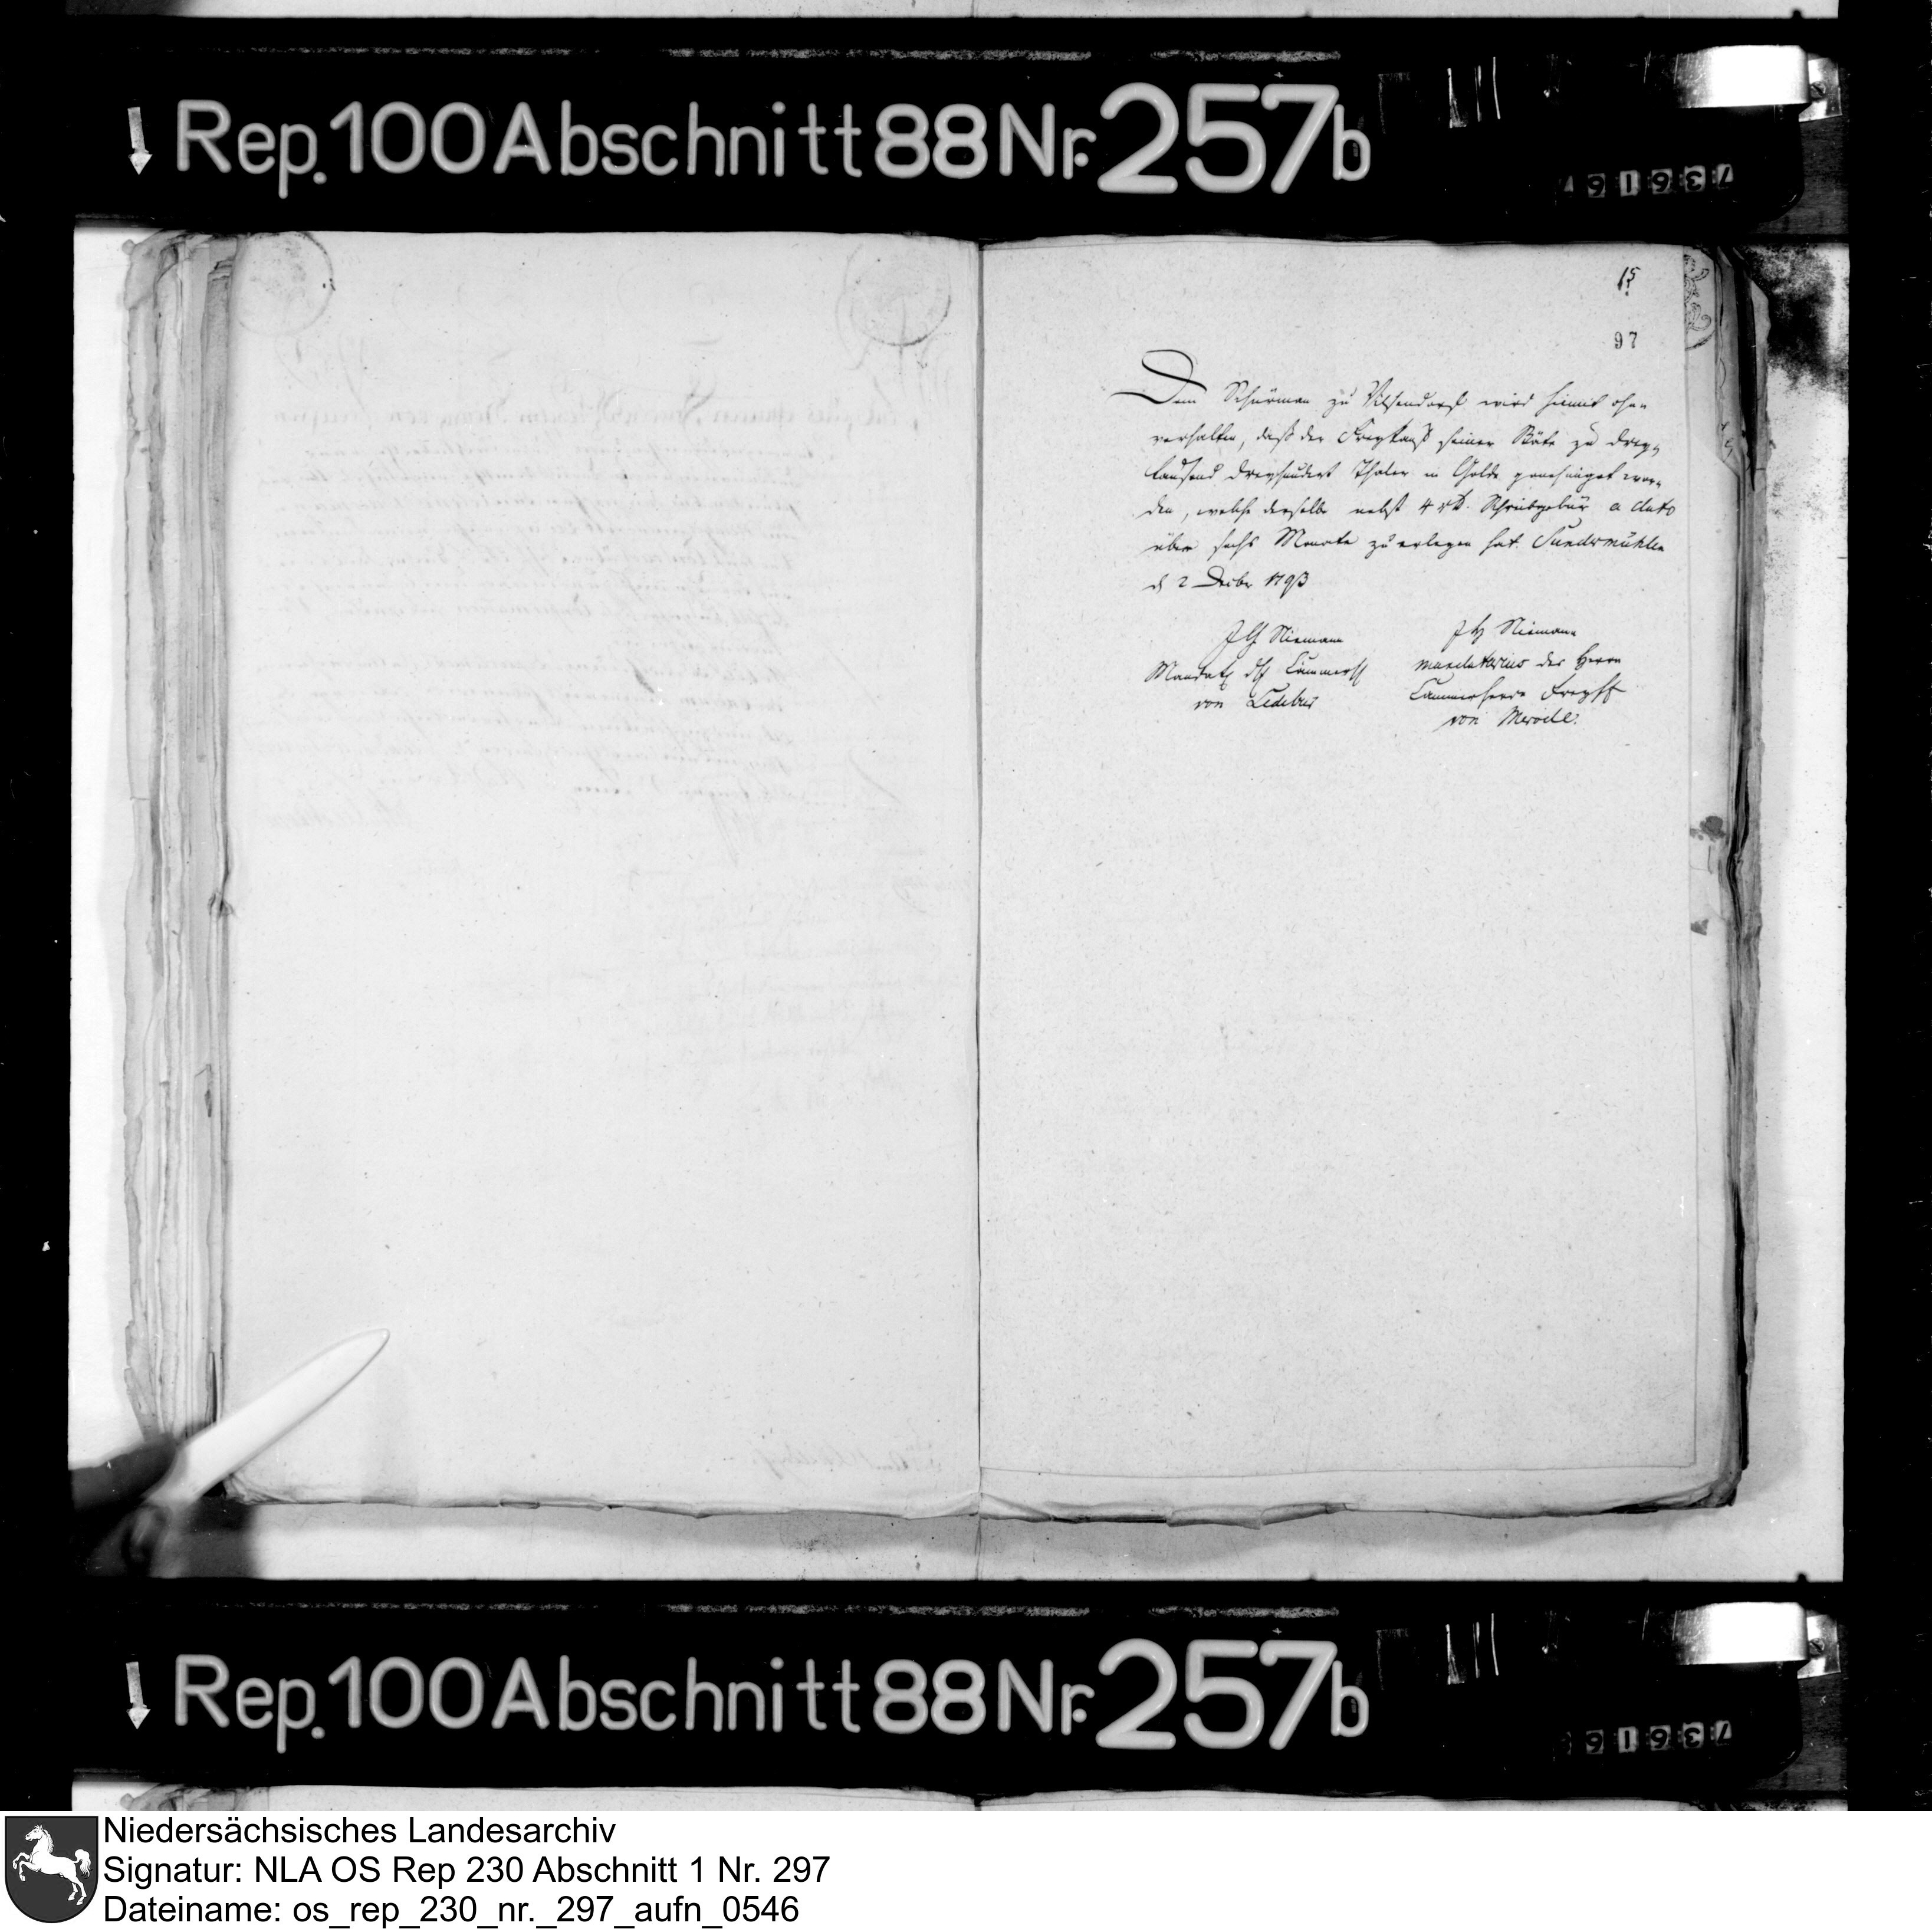 Rep. 100 Abschnitt 88 Nr. 257b
15
97
Dem Schürman zu Vilsendorff wird hiemit ohn-
verhalten, daß der Freykauf seiner Stäte zu drey-
tausend dreyhundert Thaler in Golde genehmiget wor-
den, welche derselbe nebst 4 rt. Schreibgebür a dato
über sechs Monate zu erlegen hat. Sundermühlen
d 2 Decbr 1793
Niemann
Mandat
von Ledebur
Niemann
mandatarius des Herrn
Cammerherrn Freyh
von Merode.
Rep. 100 Abschnitt 88 Nr. 257b
Niedersächsisches Landesarchiv
Signatur: NLA OS Rep 230 Abschnitt 1 Nr. 297
Dateiname: os_rep_230_nr._297_aufn_0546